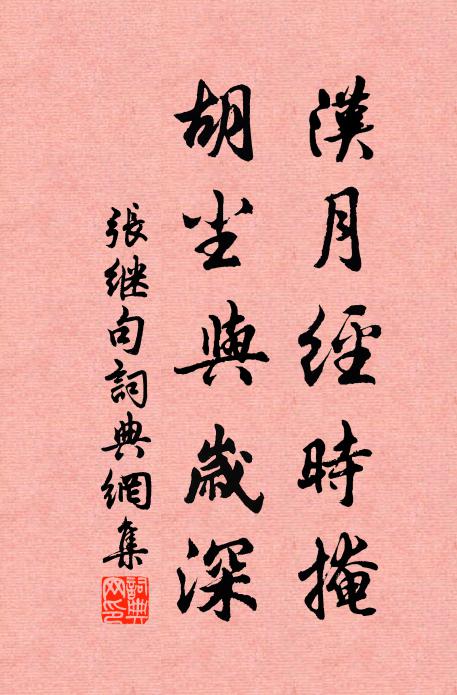 漢月經時掩
胡尘與歲深
張继句詞典網集
詞典网印